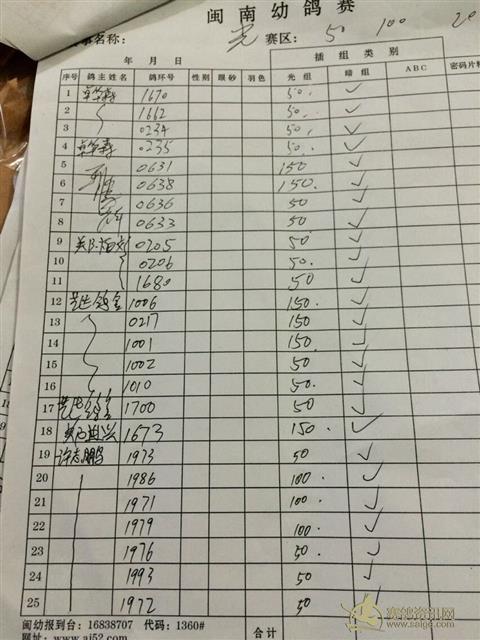 闽南幼鸽赛
名称： 光 赛区： 50 100 20
年 月 日 插组类别
序号 鸽主姓名 鸽环号 性别 眼砂 羽色 光组 暗组 ABC 密码片
1 1670 50. ✓
2 1662 50. ✓
3 0234 50. ✓
4 0235 50. ✓
5 0631 150 ✓
6 0638 150. ✓
7 0636 50 ✓
8 0633 50 ✓
9 0205 50 ✓
10 0206 50. ✓
11 1680 50 ✓
12 1006 150. ✓
13 0217 150 ✓
14 1001 150 ✓
15 1002 50 ✓
16 1010 50. ✓
17 1700 50 ✓
18 1673 150. ✓
19 许志鹏 1973 50 ✓
20 1986 100. ✓
21 1971 100. ✓
22 1979 100. ✓
23 1976 50. ✓
24 1993 50 ✓
25 1972 50 ✓
闽幼报到台：16838707 代码：1360# 合计
网址：www.aj52.com
赛鸽资讯网
www.saige.com